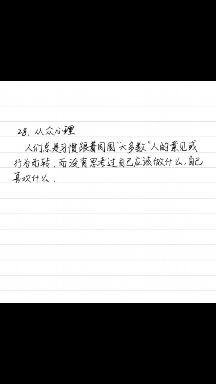 28、从众心理
人们总是习惯跟着周围“大多数”人的意见或
行为而转、而没有思考过自己应该做什么，自己
喜欢什么。